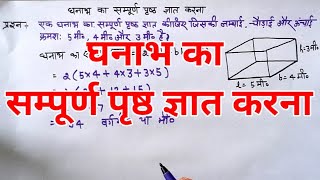 घनाभ का सम्पूर्ण पृष्ठ ज्ञात करना
प्रश्न:- एक घनाभ का सम्पूर्ण पृष्ठ ज्ञात कीजिए जिसकी लम्बाई, चौड़ाई और ऊंचाई
क्रमशः 5 मी०, 4 मी० और 3 मी० है।
घनाभ का
सम्पूर्ण पृष्ठ ज्ञात करना
= 2 (5×4 + 4×3 + 3×5)
h=3मी०
b=4मी०
l=5मी०
वर्ग